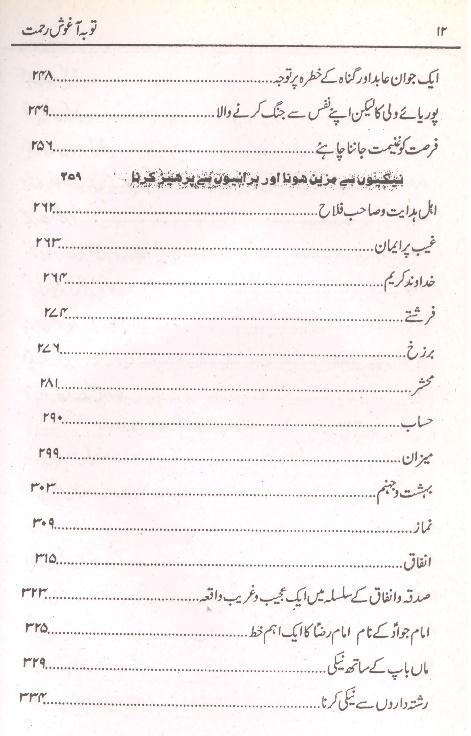 ۱۲ توبہ آغوش رحمت
ایک جوان عابد اور گناہ کے خطرہ پر توجہ ۲۴۸
پوریائے ولی کا لیکن اپنے نفس سے جنگ کرنے والا ۲۴۹
فرصت کو غنیمت جاننا چاہئے ۲۵۶
نیکیوں سے مزین ہونا اور برائیوں سے پرہیز کرنا ۲۵۹
اہل ہدایت و صاحب فلاح ۲۶۲
غیب پر ایمان ۲۶۳
خداوند کریم ۲۶۴
فرشتے ۲۷۴
برزخ ۲۷۶
محشر ۲۸۱
حساب ۲۹۰
میزان ۲۹۹
بہشت و جہنم ۳۰۳
نماز ۳۰۹
انفاق ۳۱۵
صدقہ و انفاق کے سلسلہ میں ایک عجیب و غریب واقعہ ۳۲۳
امام جوادؑ کے نام امام رضاؑ کا ایک اہم خط ۳۲۵
ماں باپ کے ساتھ نیکی ۳۲۹
رشتہ داروں سے نیکی کرنا ۳۳۴